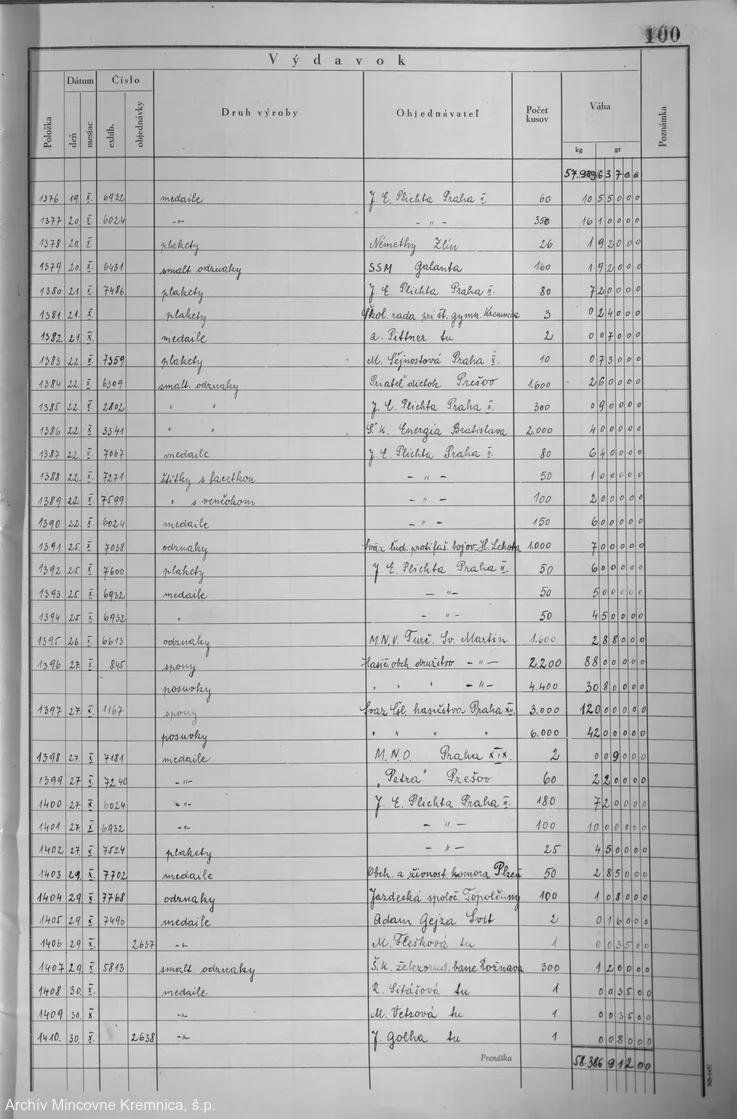 100
Výdavok
Položka Dátum Číslo Druh výroby Objednávateľ Počet kusov Váha Poznámka
deň mesiac exhib. objednávky kg gr
57.989 6 3 7 0 0
1376 19. X. 6932 medaile J. E. Plichta Praha II. 60 10 5 5 0 0 0
1377 20 X. 6024 -„- -„- 350 16 1 0 0 0 0
1378 20. X. plakety Némethy Zlín 26 1 9 2 0 0 0
1379 20. X. 6431 smalt. odznaky SSM Galanta 160 1 9 2 0 0 0
1380 21. X. 7486 plakety J. E. Plichta Praha II. 80 7 2 0 0 0 0
1381 21. X. plakety Škol. rada pri št. gymn. Kremnica 3 0 2 4 0 0 0
1382 21. X. medaile A. Pittner tu 2 0 0 7 0 0 0
1383 22. X. 7359 plakety M. Šejnostová Praha X. 10 0 7 3 0 0 0
1384 22. X. 6309 smalt. odznaky Priateľ dietok Prešov 1.600 2 6 0 0 0 0
1385 22. X. 2802 „ „ J. E. Plichta Praha II. 300 0 9 0 0 0 0
1386 22. X. 3341 „ „ Š.K. Energia Bratislava 2.000 4 0 0 0 0 0
1387 22. X. 7067 medaile J. E. Plichta Praha II. 80 6 4 0 0 0 0
1388 22. X. 7271 štítky s facetkou -„- 50 1 0 0 0 0 0
1389 22. X. 7599 „ s venčokom -„- 100 2 0 0 0 0 0
1390 22. X. 6024 medaile -„- 150 6 0 0 0 0 0
1391 25. X. 7038 odznaky Sväz ľud. protifaš. bojov. Hl. Lehota 1.000 7 0 0 0 0 0
1392 25. X. 7600 plakety J. E. Plichta Praha II. 50 6 0 0 0 0 0
1393 25. X. 6932 medaile -„- 50 5 0 0 0 0 0
1394 25 X. 6932 „ -„- 50 4 5 0 0 0 0
1395 26 X. 6613 odznaky M.N.V. Turč. Sv. Martin 1.600 2 8 8 0 0 0
1396 27. X. 845 spony Hasič. obch. družstvo -„- 2.200 88 0 0 0 0 0
posuvky „ „ -„- 4.400 30 8 0 0 0 0
1397 27. X. 1167 spony Svaz čsl. hasičstva Praha XII. 3.000 120 0 0 0 0 0
posuvky „ „ „ 6.000 42 0 0 0 0 0
1398 27. X. 7181 medaile M.N.O. Praha XIX. 2 0 0 9 0 0 0
1399 27 X. 7240 -„- „Petra" Prešov 60 2 2 0 0 0 0
1400 27. X. 6024 -„- J. E. Plichta Praha II. 180 7 2 0 0 0 0
1401 27. X. 6932 -„- -„- 100 10 0 0 0 0 0
1402 27. X. 7524 plakety -„- 25 4 5 0 0 0 0
1403 29. X. 7702 medaile Obch. a živnost. komora Plzeň 50 2 8 5 0 0 0
1404 29 X. 7768 odznaky Jazdecká spoloč. Topoľčany 100 1 0 8 0 0 0
1405 29 X. 7490 medaile Adam Gejza Svit 2 0 1 6 0 0 0
1406 29 X. 2637 -„- M. Flešková tu 1 0 0 3 5 0 0
1407 29. X. 5813 smalt odznaky Š.K. železorud. bane Rožňava 300 1 2 0 0 0 0
1408 30. X. medaile R. Sitášová tu 1 0 0 3 5 0 0
1409 30. X. -„- M. Vetzová tu 1 0 0 3 5 0 0
1410. 30. X. 2638 -„- J. Golha tu 1 0 0 8 0 0 0
Prenáška 58.386 9 1 2 0 0
Archív Mincovne Kremnica, š.p.